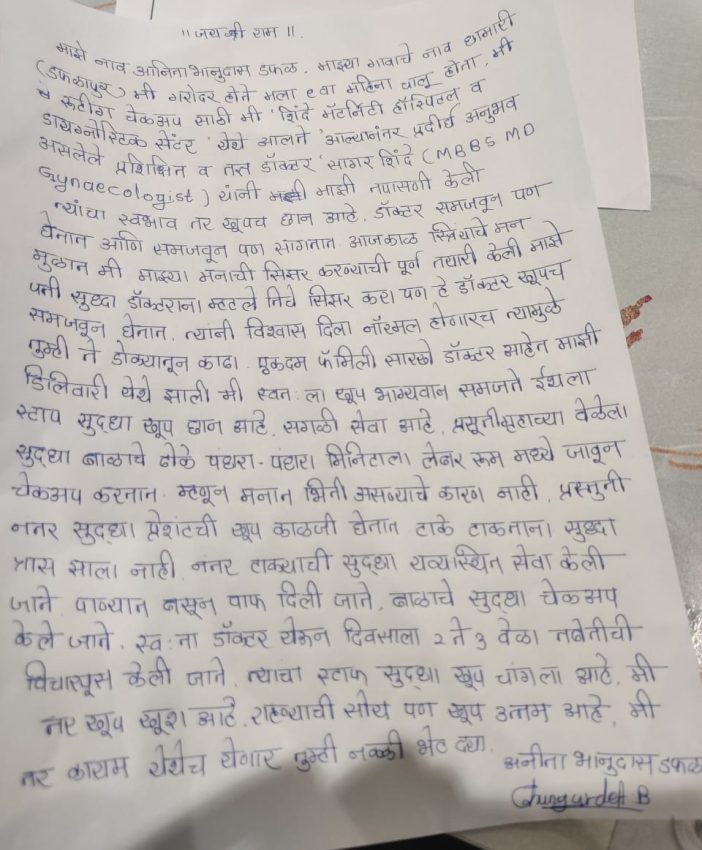 ।। जय श्री राम ।।.
माझे नाव अनिता भानुदास डफळ. माझ्या गावाचे नाव धामारी
(डफळापुर) मी गरोदर होते मला ९वा महिना चालू होता. मी
व रूटीग चेकअप साठी मी 'शिंदे मॅटर्निटी हॉस्पिटल व
डायग्नोस्टिक सेंटर' येथे आलते 'आल्यानंतर प्रदीर्घ अनुभव
असलेले प्रशिक्षित व तज्ञ डॉक्टर 'सागर शिंदे (MBBS MD
Gynaecologist) यांनी माझी तपासणी केली
त्यांचा स्वभाव तर खूपच छान आहे. डॉक्टर समजवून पण
घेतात आणि समजवून पण सांगतात आजकाळ स्त्रियांचे मन
मुळात मी माझ्या मनाची सिझर करण्याची पूर्ण तयारी केली माझे
पती सुध्दा डॉक्टरांना म्हटले तिचे सिझर करा पण हे डॉक्टर खूपच
समजवून घेतात. त्यांनी विश्वास दिला नॉरमल होणारच त्यामुळे
तुम्ही ते डोक्यातून काढा. एकदम फॅमिली सारखे डॉक्टर आहेत माझी
डिलिवारी येथे झाली मी स्वत:ला खूप भाग्यवान समजते ईथला
स्टाप सुद्धा खूप छान आहे. सगळी सेवा आहे. प्रसूतीगृहाच्या वेळेला
सुद्धा बाळाचे ठोके पंधरा-पंधरा मिनिटाला लेबर रूम मध्ये जावून
चेकअप करतात. म्हणून मनात भिती असण्याचे कारण नाही. प्रस्तुती
नंतर सुद्धा पेशंटची खूप काळजी घेतात टाके टाकताना सुद्धा
त्रास झाला नाही. नंतर टाक्याची सुद्धा व्यवस्थित सेवा केली
जाते. पाण्यात बसून वाफ दिली जाते. बाळाचे सुद्धा चेकअप
केले जाते. स्व:ता डॉक्टर येऊन दिवसाला २ ते ३ वेळा तबेतीची
विचारपूस केली जाते. त्यांचा स्टाफ सुद्धा खूप चांगला आहे. मी
तर खूप खूश आहे. राहण्याची सोय पण खूप उत्तम आहे. मी
तर कायम येथेच येणार तुम्ही नक्की भेट द्या.
अनीता भानुदास डफळ